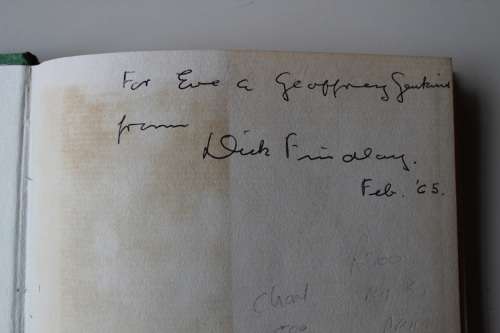 For Eve & Geoffrey Jenkins
from
Dick Findlay.
Feb. '65.